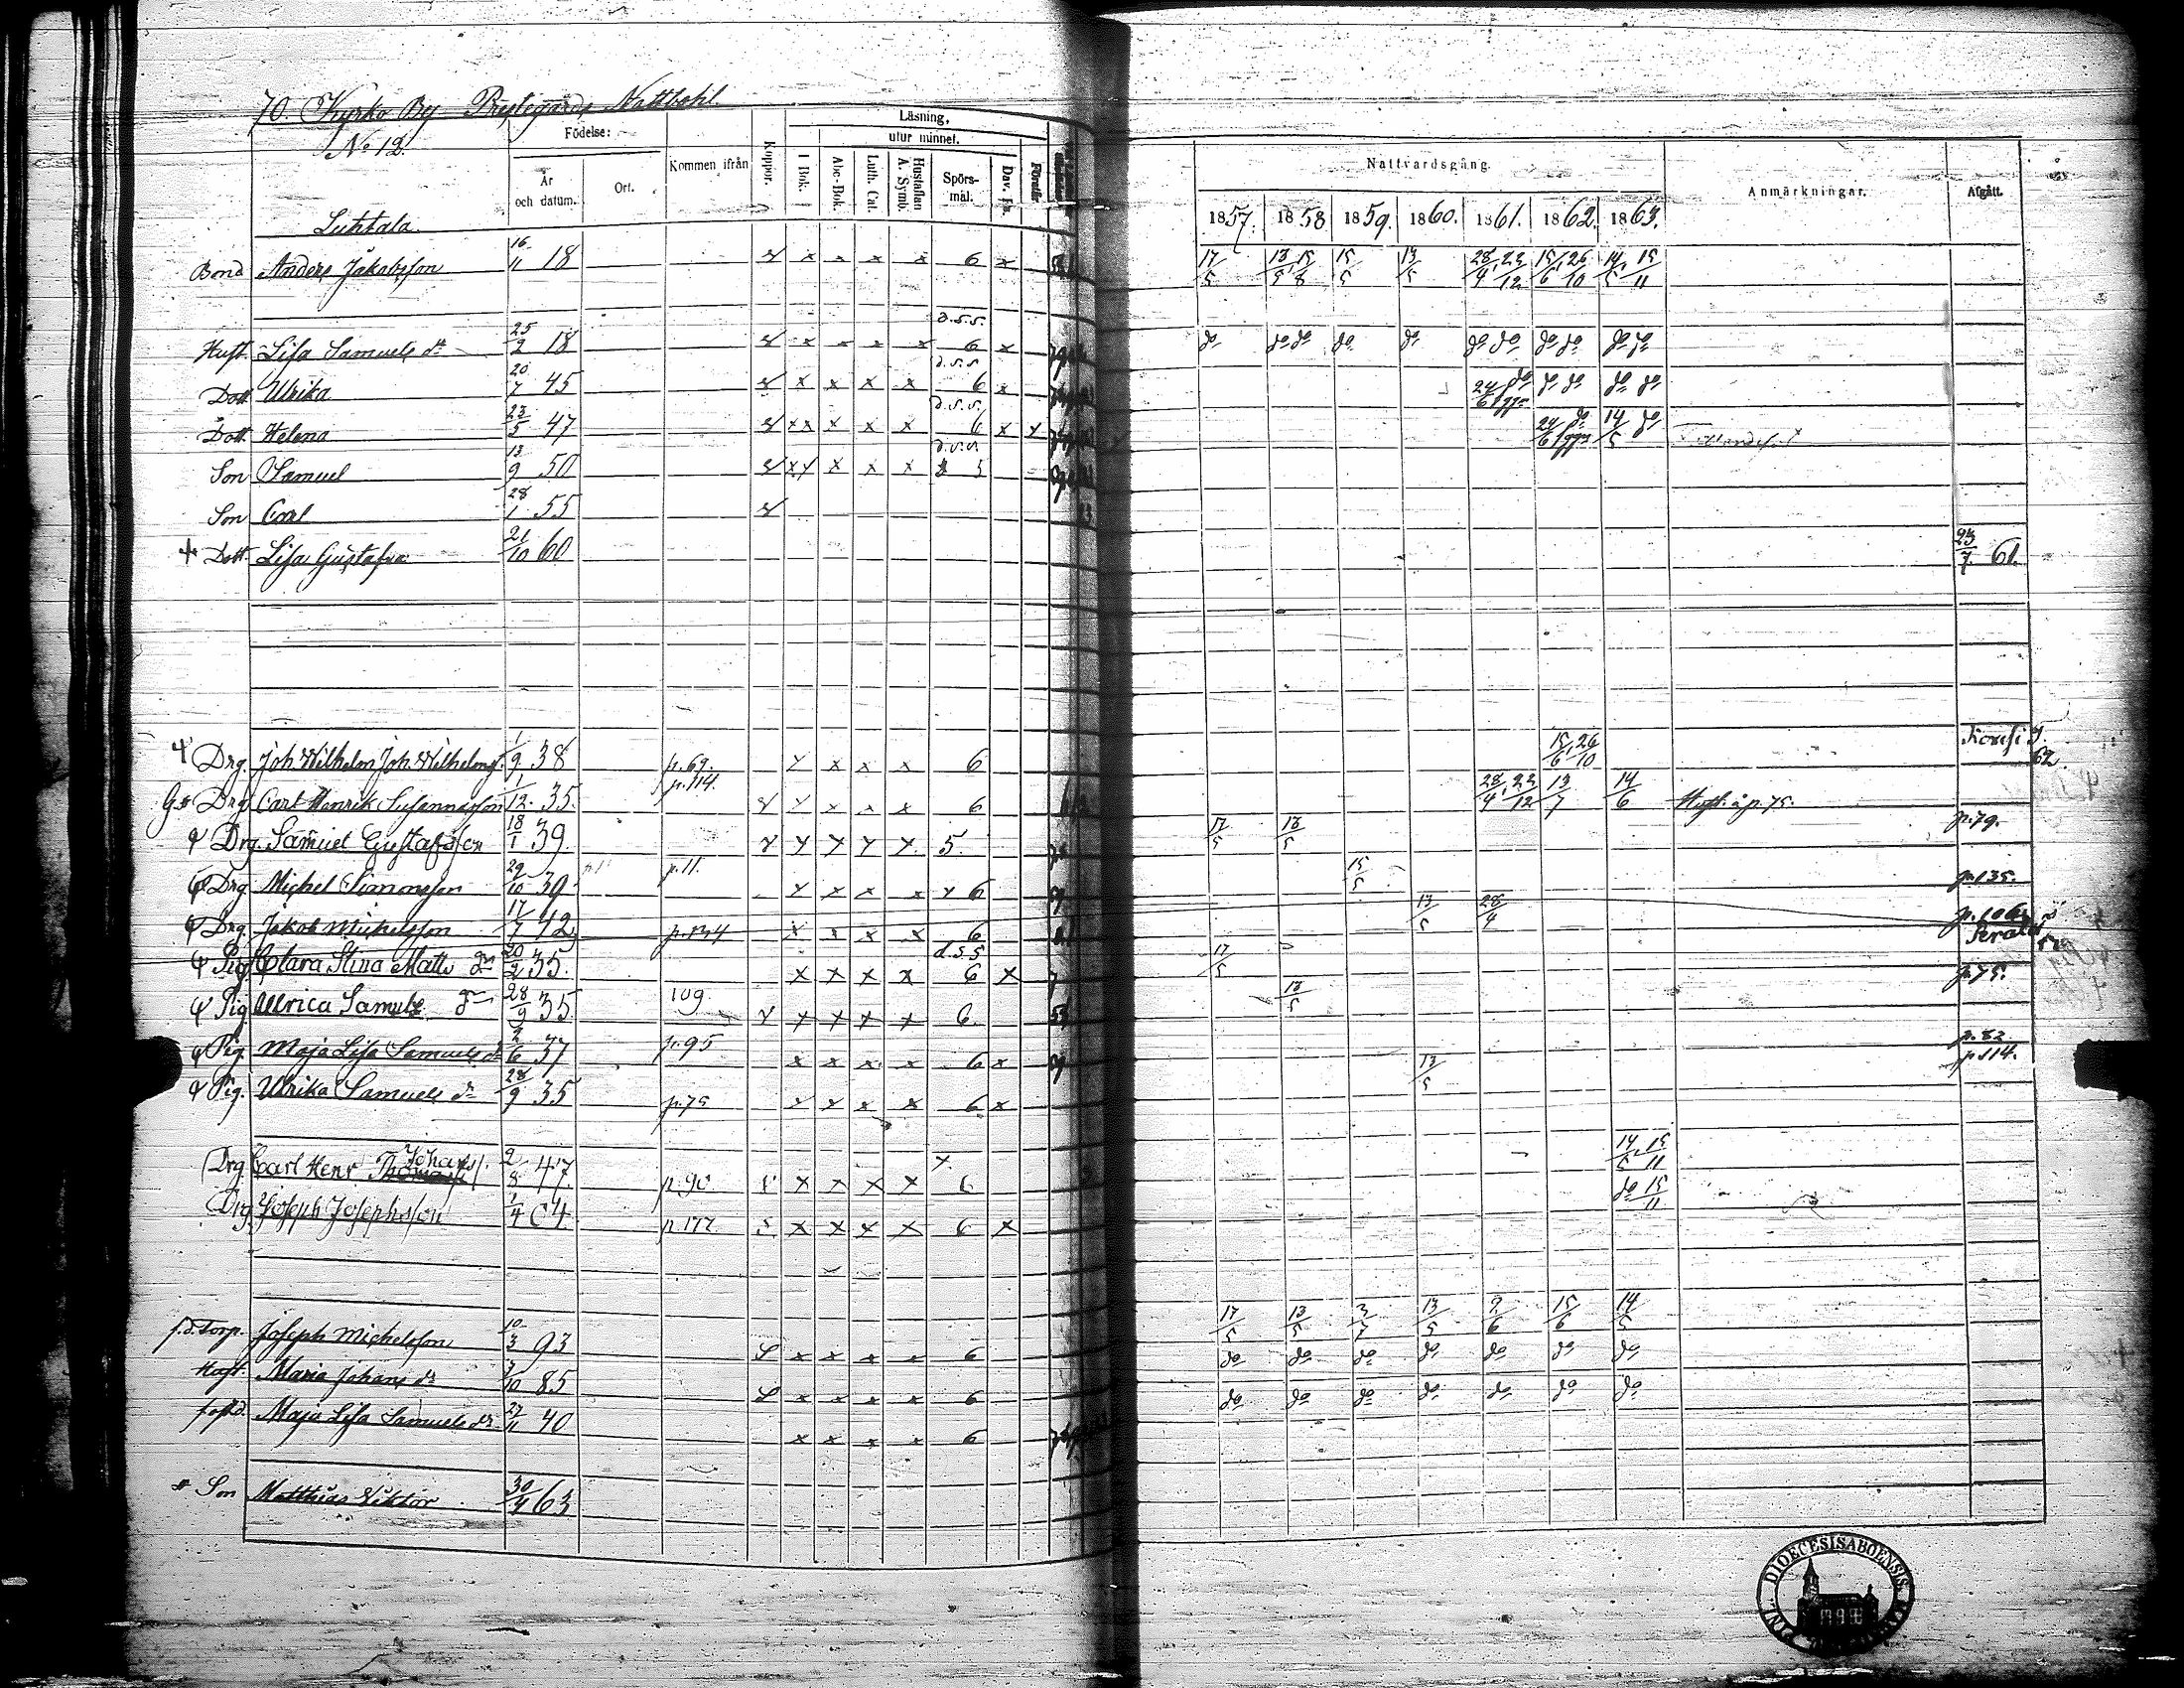 70. Kyrko By Prestegårds Nattbohl.
No 12.
Födelse:
År och datum.
Ort.
Kommen ifrån
Koppor.
Läsning,
utur minnet.
I Bok.
Abc-Bok.
Luth. Cat.
Hustaflan A. Symb.
Spörs-mål.
Dav. Ps.
Förstår
Nattvardsgång
Anmärkningar.
Afgått.
1857. 1858 1859. 1860. 1861. 1862. 1863.
Luhtala.
Bond Anders Jakobsson 16/11 18 x x x x 6 x 17/5 13/5, 15/8 15/5 13/5 28/4, 22/12 15/6, 26/10 14/5, 15/11
d.s.s.
Hust. Lisa Samuels dr 25/2 18 x x x x 6 x do do do do do do do do do do do
d.s.s.
Dott Ulrika 20/7 45 x x x x 6 x 24/6 do do do do do
d.s.s.
Dott. Helena 23/5 47 xx x x x 6 x x 24/6 do 14/5 do
d.s.s.
Son Samuel 13/9 50 xx x x x 5
Son Carl 28/1 55
Dott. Lisa Gustafva 21/10 60 23/7 61.
Drg. Joh Wilhelm Joh. Wilhelmss. 1/9 38 p.69. x x x x 6 15/6, 26/10 62.
Drg Carl Henrik Susannasson 1/12. 35. p.114. x x x x 6 28/4, 22/12 13/7 14/6 Hust. å p. 75.
Drg. Samuel Gustafsson 18/1 39. x x x x 5. 17/5 13/5 p.79.
Drg Michel Simonsson 29/10 39 p.11. x x x x x 6 15/5 p.135.
Drg. Jakob Michelsson 17/7 42 p.134 x x x x 6 13/5 28/4 p.106.
d.s.s
Pig Clara Stina Matts dr 20/2 35. x x x x 6 x 17/5
Pig Ulrica Samuls dr 28/9 35 109. x x x x 6. 13/5 p.75.
Pig. Maja Lisa Samuels dr 2/6 37 p.95 x x x x 6 x p.82
Pig. Ulrika Samuels dr 28/9 35 p.75 x x x x 6 x 13/5 p.114.
Johans.
Drg Carl Henr. Thomass 2/8 47. p.90 x x x x 6 14/5, 15/11
Drg Joseph Josephsson 1/4 p.177 x x x x 6 x do 15/11
f.d. torp. Joseph Michelsson 10/3 93 x x x x 6 17/5 13/5 3/7 13/5 9/6 15/6 14/5
Hust. Maria Johans dr 7/10 85 x x x x 6 do do do do do do do
fostd. Maja Lisa Samuels dr. 27/11 40 x x x x 6 do do do do do do do
Son Matthias Wiktor 30/4 63
DIOECESIS ABOENSIS